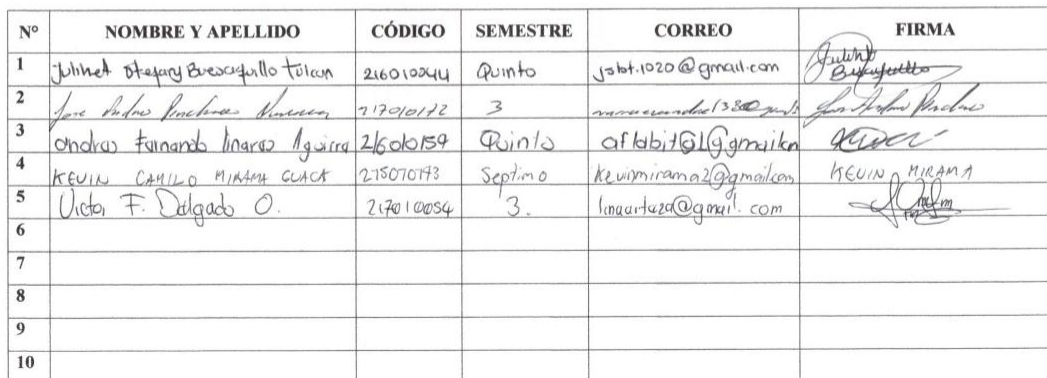 N° NOMBRE Y APELLIDO CÓDIGO SEMESTRE CORREO FIRMA
1 Julihet Stefany Buesaquillo Tulcan 216010244 Quinto jsbt.1020@gmail.com Julihet Buesaquillo
2 Jose Andres 217010172 3
3 Andres Fernando linares Aguirre 216010159 Quinto
4 KEVIN CAMILO MIRAMA GUACA 215010193 Septimo Kevinmirama2@gmail.com KEVIN MIRAMA
5 Victor F. Delgado O. 217010054 3.
6
7
8
9
10